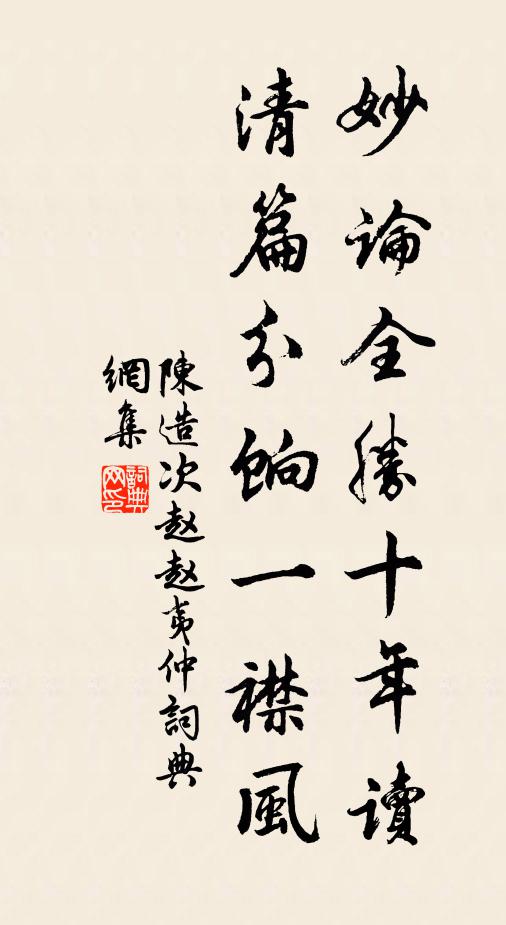 妙論全勝十年讀
清篇分餉一襟風
陳造次赵赵夷仲詞典
網集
詞典網印